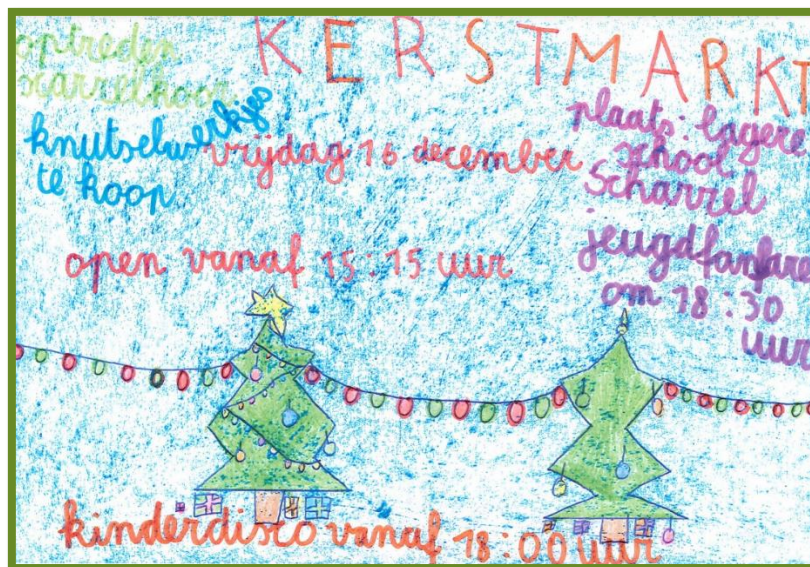 KERSTMARKT
optreden
scarrelkoor
knutselwerkjes
te koop
vrijdag 16 december
plaats: lagere
school
Scharrel
open vanaf 15:15 uur
jeugdfanfare
om 18:30
uur
kinderdisco vanaf 18:00 uur